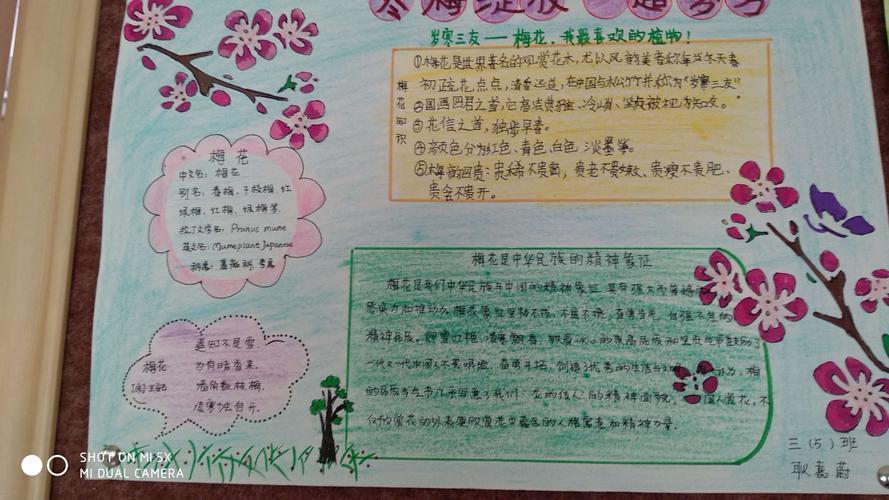 寒梅绽放
岁寒三友——梅花，我最喜欢的植物！
梅花知识
①梅花是世界著名的观赏花木，尤以风韵美著称每当冬天春
初疏花点点，清香远道，在中国与松竹并称为“岁寒三友”
②国画四君之首，
③花信之首，独步早春。
④颜色分为红色、青色、白色、淡墨等。
⑤梅韵四贵：贵稀不贵密，贵老不贵嫩、贵瘦不贵肥、
贵含不贵开。
梅花
中文名：梅花
别名：春梅、干枝梅、红
绿梅、红梅、绿梅等
拉丁文学名：Prunus mume
英文名：Mumeplant Japanese
科属：蔷薇科、杏属
梅花是中华民族的精神象征
梅花是我们中华民族与中国的精神象征 具有强大而普遍的
感染力和推动力。梅花象征坚韧不拔、不屈不挠、奋勇当先、自强不息的
精神品质。
一代又一代中国人不畏艰险、奋勇开拓、创造了优秀的生活与文明
的品质与气节几乎写意了我们“龙的传人”的精神面貌。国人赏花，不
仅欣赏花的外表更欣赏花中蕴含的人格寓意和精神力量。
梅花
[宋]王安石
遥知不是雪，
为有暗香来。
墙角数枝梅，
凌寒独自开。
三（5）班
耿嘉蔚
SHOT ON MI 5X
MI DUAL CAMERA